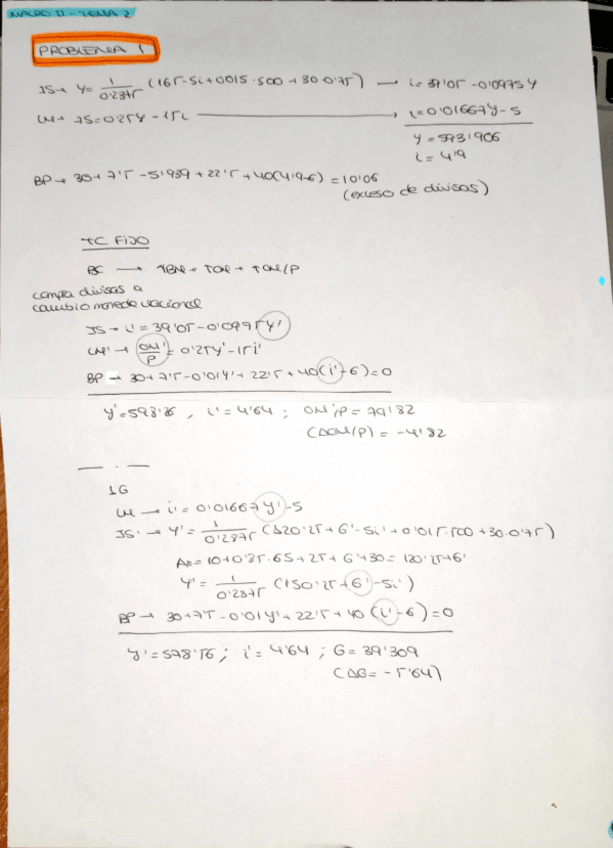 MACRO II - TEMA 2
PROBLEMA 1
IS → Y = 1/0'2375 (165 - 5i + 0'015 · 500 + 30 · 0'75) → i = 39'05 - 0'0975 Y
LM → 75 = 0'25Y - 15i → i = 0'01667Y - 5
Y = 593'906
i = 4'9
BP → 30 + 7'5 - 5'939 + 22'5 + 40(4'9 - 6) = 10'06
(exceso de divisas)
TC FIJO
BC → ↑BM → ↑OM → ↑OM/P
compra divisas a
cambio moneda nacional
IS → i' = 39'05 - 0'0975 Y'
LM' → OM'/P = 0'25Y' - 15i'
BP → 30 + 7'5 - 0'01Y' + 22'5 + 40(i' - 6) = 0
Y' = 598'8 , i' = 4'64 ; OM'/P = 79'82
(ΔOM/P) = -4'82
IG
LM → i' = 0'01667 Y' - 5
IS' → Y' = 1/0'2875 (120'25 + G' - 5i' + 0'015 · 500 + 30 · 0'75)
A0 = 10 + 0'85 · 65 + 25 + G' + 30 = 120'25 + G'
Y' = 1/0'2875 (150'25 + G' - 5i')
BP → 30 + 7'5 - 0'01Y' + 22'5 + 40 (i' - 6) = 0
Y' = 578'56 ; i' = 4'64 ; G = 39'309
(ΔG = -5'64)